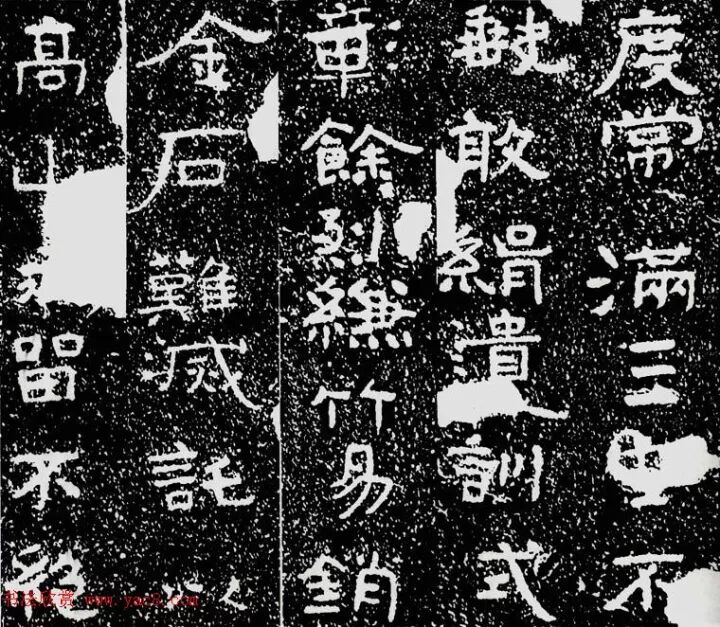 度常滿三不
敢絹潰訓式
彰餘烈縑竹易銷
金石難滅託以
高山永留不絕
书法欣赏 www.yac8.com